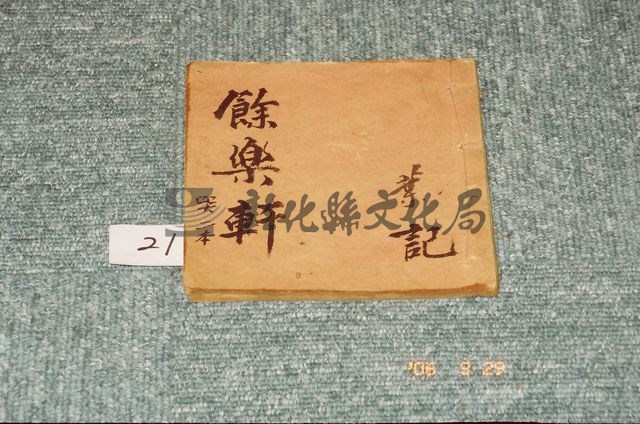 餘樂軒
本
記
21
彰化縣文化局
'06 9 29